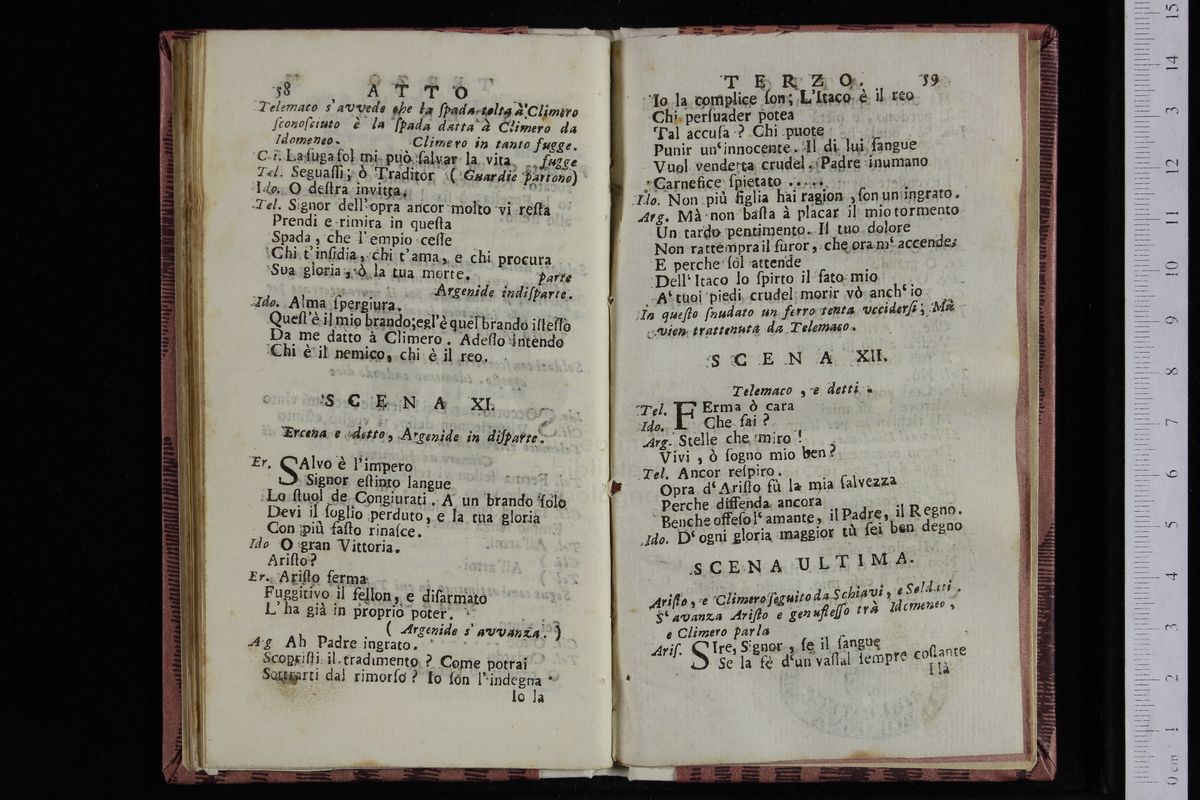 58 ATTO
Telemaco s'avvede che la ſpada tolta à Climero
ſconoſciuto è la ſpada datta à Climero da
Idomeneo. Climero in tanto fugge.
Cli. La fuga ſol mi può ſalvar la vita fugge
Tel. Seguaſſi; ò Traditor (Guardie partono)
Ido. O deſtra invitta.
Tel. Signor dell'opra ancor molto vi reſta
Prendi e rimira in queſta
Spada, che l'empio ceſſe
Chi t'inſidia, chi t'ama, e chi procura
Sua gloria, ò la tua morte. parte
Argenide indiſparte.
Ido. Alma ſpergiura.
Queſt'è il mio brando; egl'è quel brando iſteſſo
Da me datto à Climero. Adeſſo intendo
Chi è il nemico, chi è il reo.
SCENA XI.
Ercena e detto, Argenide in diſparte.
Er. SAlvo è l'impero
Signor eſtinto langue
Lo ſtuol de Congiurati. A un brando ſolo
Devi il ſoglio perduto, e la tua gloria
Con più faſto rinaſce.
Ido O gran Vittoria.
Ariſto?
Er. Ariſto ferma
Fuggitivo il fellon, e diſarmato
L'ha già in proprio poter.
( Argenide s'avvanza. )
Ag Ah Padre ingrato.
Scopriſti il tradimento? Come potrai
Sottrarti dal rimorſo? Io ſon l'indegna
Io la
TERZO. 59
Io la complice ſon; L'Itaco è il reo
Chi perſuader potea
Tal accuſa? Chi puote
Punir un' innocente. Il di lui ſangue
Vuol vendetta crudel. Padre inumano
Carnefice ſpietato .....
Ido. Non più figlia hai ragion, ſon un ingrato.
Arg. Mà non baſta à placar il mio tormento
Un tardo pentimento. Il tuo dolore
Non rattempra il furor, che ora m' accende;
E perche ſol attende
Dell' Itaco lo ſpirto il fato mio
A' tuoi piedi crudel morir vò anch' io
In queſto ſnudato un ferro tenta ucciderſi; Mà
vien trattenuta da Telemaco.
SCENA XII.
Telemaco, e detti.
Tel. FErma ò cara
Ido. Che fai?
Arg. Stelle che miro!
Vivi, ò ſogno mio ben?
Tel. Ancor reſpiro.
Opra d' Ariſto fù la mia ſalvezza
Perche diffenda ancora
Benche offeſo l' amante, il Padre, il Regno.
Ido. D' ogni gloria maggior tù ſei ben degno
SCENA ULTIMA.
Ariſto, e Climero ſeguito da Schiavi, e Soldati.
S' avanza Ariſto e genufleſſo trà Idomeneo,
e Climero parla
Ariſ. SIre, Signor, ſe il ſangue
Se la fè d' un vaſſal ſempre coſtante
Hà